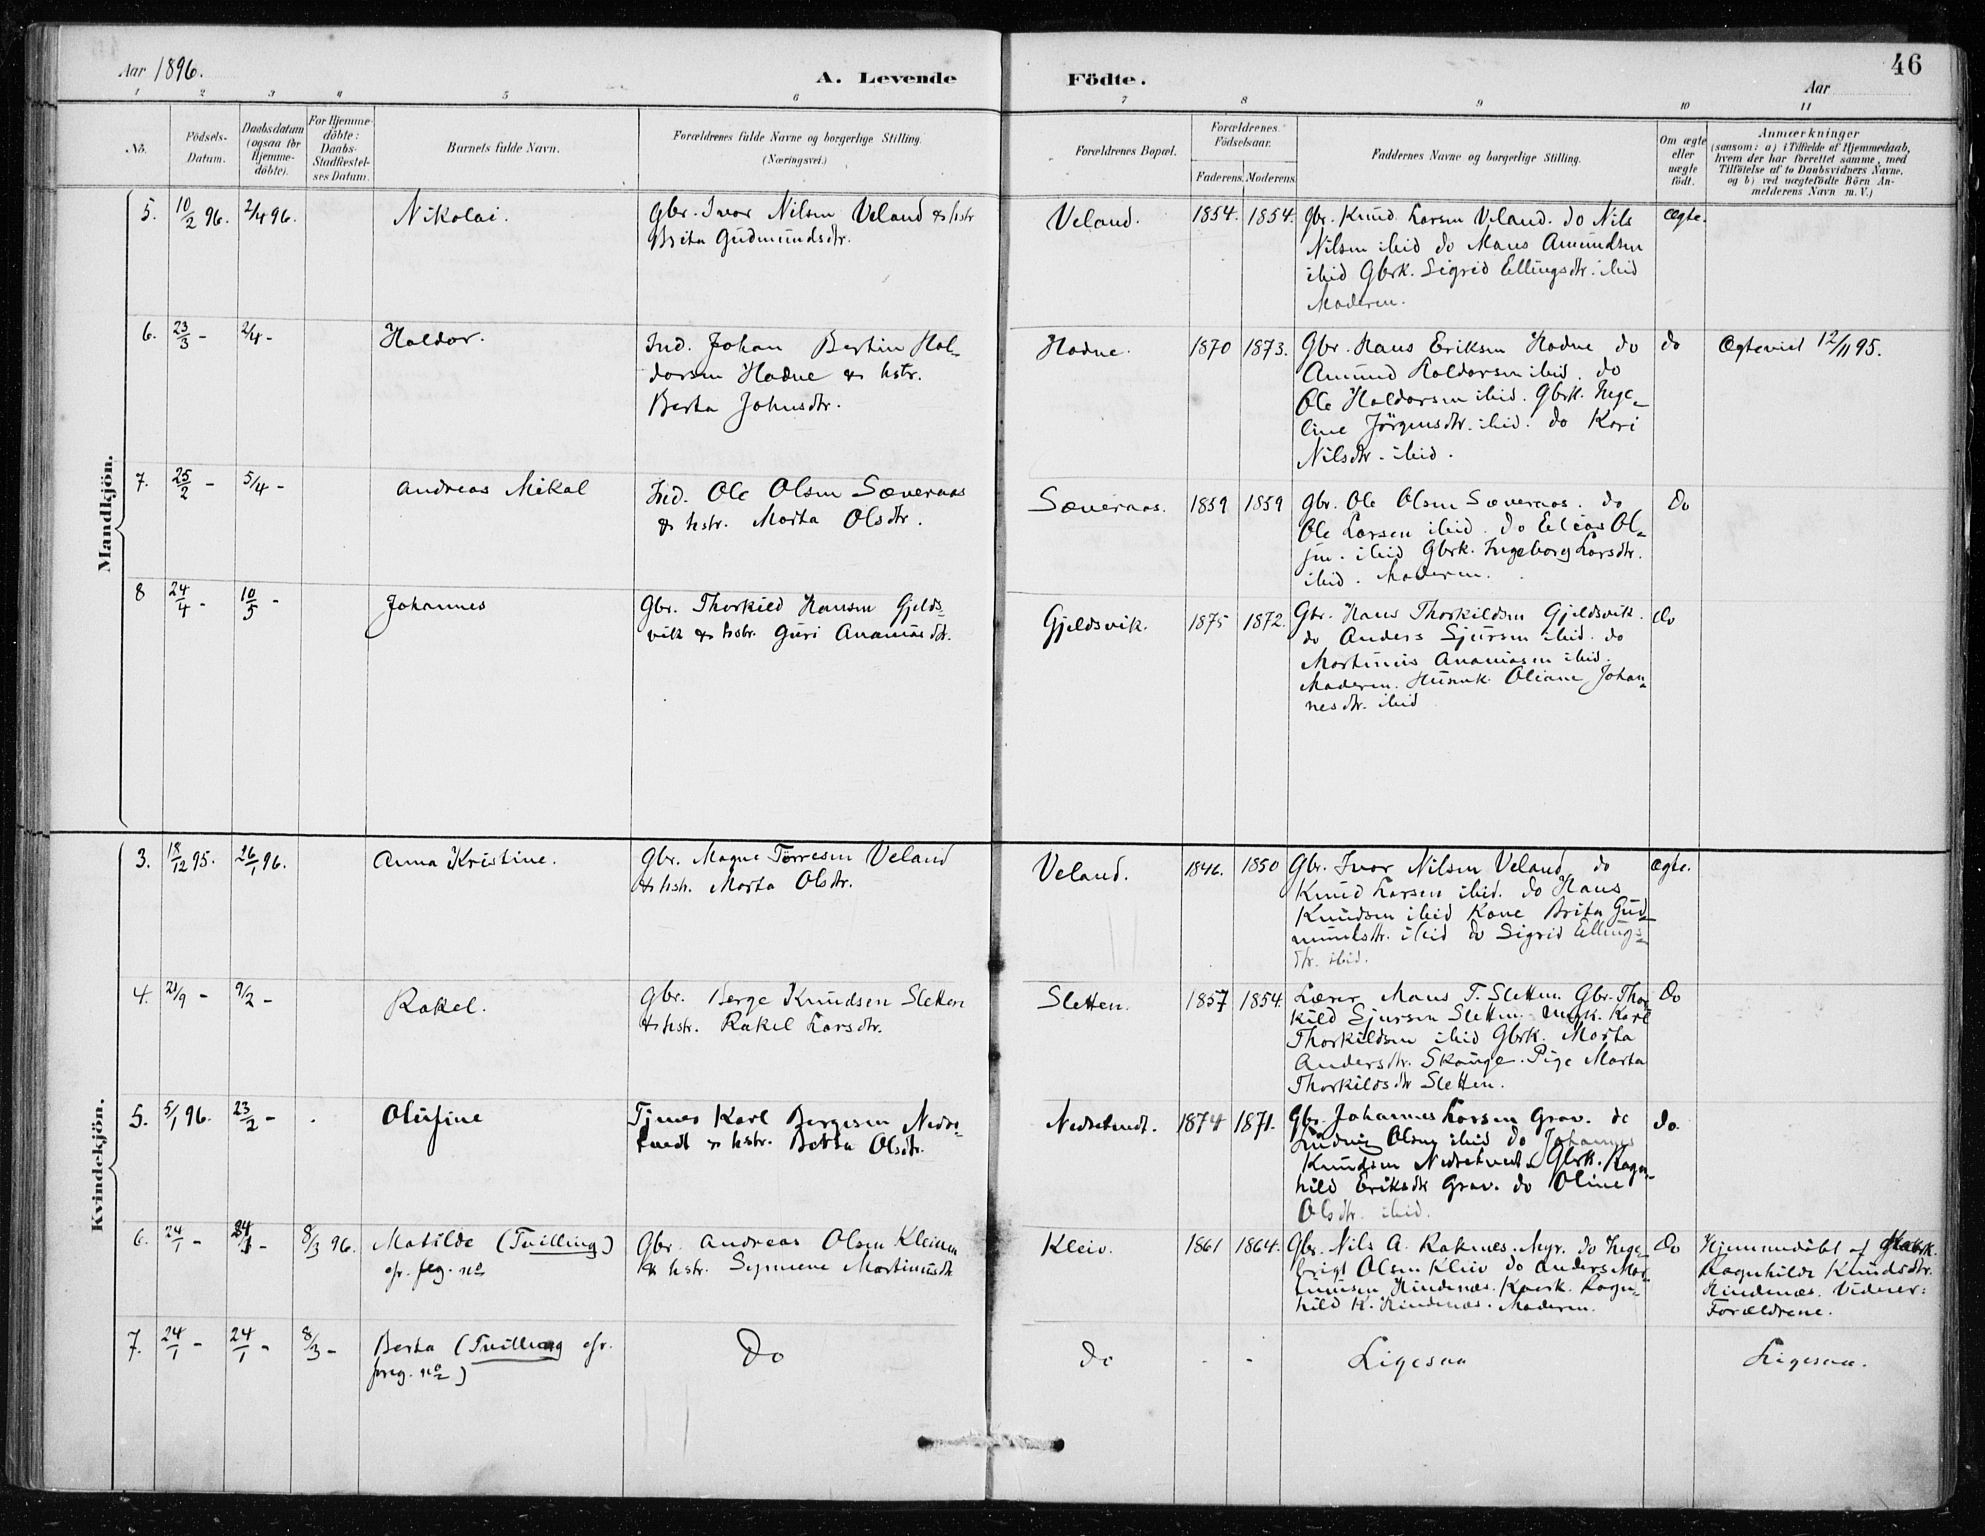 46
Aar 1896.
A. Levende
Födte.
Aar
1
2
3
4
5
6
7
8
9
10
11
Nö.
Födsels-
Datum.
Daabsdatum
(ogsaa for
Hjemme-
döbte).
For Hjemme-
döbte:
Daabs-
Stadfæstel-
ses Datum.
Barnets fulde Navn.
Forældrenes fulde Navne og borgerlige Stilling.
(Næringsvei.)
Forældrenes Bopæl.
Forældrenes
Födselsaar.
Faderens.
Moderens.
Faddernes Navne og borgerlige Stilling.
Om ægte
eller
uægte
födt.
Anmærkninger
(saasom: a) i Tilfælde af Hjemmedaab,
hvem der har forrettet samme, med
Tilföielse af to Daabsvidners Navne,
og b) ved uægtefödte Börn An-
melderens Navn m. V.)
Mandkjön.
5.
10/2 96.
2/4 96.
Nikolai.
Gbr. Ivar Nilsen Veland & hstr
Brita Gudmundsdtr.
Veland.
1854.
1854.
Gbr. Knud Larsen Veland. do Nils
Nilsen ibid do Mans Amundsen
ibid Gbrk. Sigrid Ellingsdtr. ibid
Moderen.
Ægte.
6.
23/3 -
2/4 -
Haldor.
Ind. Johan Bertin Hal-
dorsen Hadne & hstr.
Berta Johnsdtr.
Hadne.
1870
1873.
Gbr. Hans Eriksen Hadne do
Amund Haldorsen ibid. do
Ole Haldorsen ibid. Gbrk. Inge-
line Jörgensdtr. ibid. do Kari
Nilsdtr. ibid.
do
Ægteviet 12/11 95.
7.
25/2 -
5/4 -
Andreas Mikal
Ind. Ole Olsen Sæveraas
& hstr. Marta Olsdtr.
Sæveraas.
1859
1859
Gbr. Ole Olsen Sæveraas. do
Ole Larsen ibid. do Elias Ol-
sen. ibid Gbrk. Ingeborg Larsdtr.
ibid. Moderen.
Do
8
24/4 -
10/5 -
Johannes
Gbr. Thorkild Hansen Gjelds-
vik & hstr. Guri Ananiasdtr.
Gjeldsvik.
1875
1872.
Gbr. Hans Thorkildsen Gjeldsvik.
do Anders Sjursen ibid. do
Martinus Ananiasen ibid.
Moderen. Husmk. Oliane Johan-
nesdtr. ibid
do
Kvindekjön.
3.
18/12 95.
26/1 96.
Anna Kristine.
Gbr. Magne Torresen Veland
& hstr. Marta Olsdtr.
Veland.
1846.
1850
Gbr. Ivar Nilsen Veland do
Knud Larsen ibid. do Hans
Knudsen ibid Kone Brita Gud-
mundsdtr. ibid do Sigrid Ellings-
dtr. ibid.
Ægte.
4.
21/9 -
9/2 -
Rakel.
Gbr. Berge Knudsen Sletten
& hstr. Rakel Larsdtr.
Sletten.
1857
1854.
Lærer Mans T. Sletten. Gbr. Thor
kild Sjursen Sletten. Ungk. Karl
Thorkildsen ibid Gbrk. Marta
Andersdtr. Skauge. Pige Marta
Thorkildsdtr Sletten.
Do
5.
5/1 96.
23/2 -
Olufine
Tjener Karl Bergesen Nedre-
tvedt & hstr. Berta Olsdtr.
Nedretvedt.
1874
1871.
Gbr. Johannes Larsen Grav. do
Ludvig Olsen ibid do Johannes
Knudsen Nedretvedt. Gbrk. Ragn-
hild Eriksdtr Grav. do Oline
Olsdtr. ibid.
do.
6.
24/1 -
24/1 -
8/3 96.
Matilde (Tvilling)
cfr. flg. no
Gbr. Andreas Olsen Kleiven
& hstr. Synneve Martinusdtr
Kleiv.
1861
1864.
Gbr. Nils A. Raknes. Myr. do Inge-
brigt Olsen Kleiv do Anders Mar-
tinusen Hindenæs. Kaark. Ragn-
hild K. Hindenæs. Moderen.
Do
Hjemmedöbt af
Ragnhilde Knudsdtr.
Hindenæs. Vidner:
Forældrene.
7.
24/1 -
24/1 -
8/3 -
Berta (Tvilling cfr.
foreg. no)
Do
do
-
-
Ligesaa
Ligesaa.